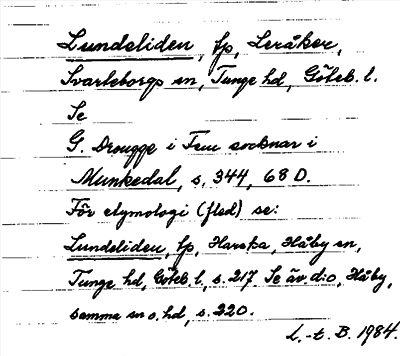 Lundsliden, fp, Leråker,
Svarteborgs sn, Tunge hd, Göteb. l.
Se
G. Drougge i Fem socknar i
Munkedal, s. 344, 68 D.
För etymologi (fled) se:
Lundsliden, fp, Harska, Håby sn,
Tunge hd, Göteb. l., s. 217. Se äv. d:o, Håby,
samma sn o. hd, s. 220.
L.-t. B. 1984.